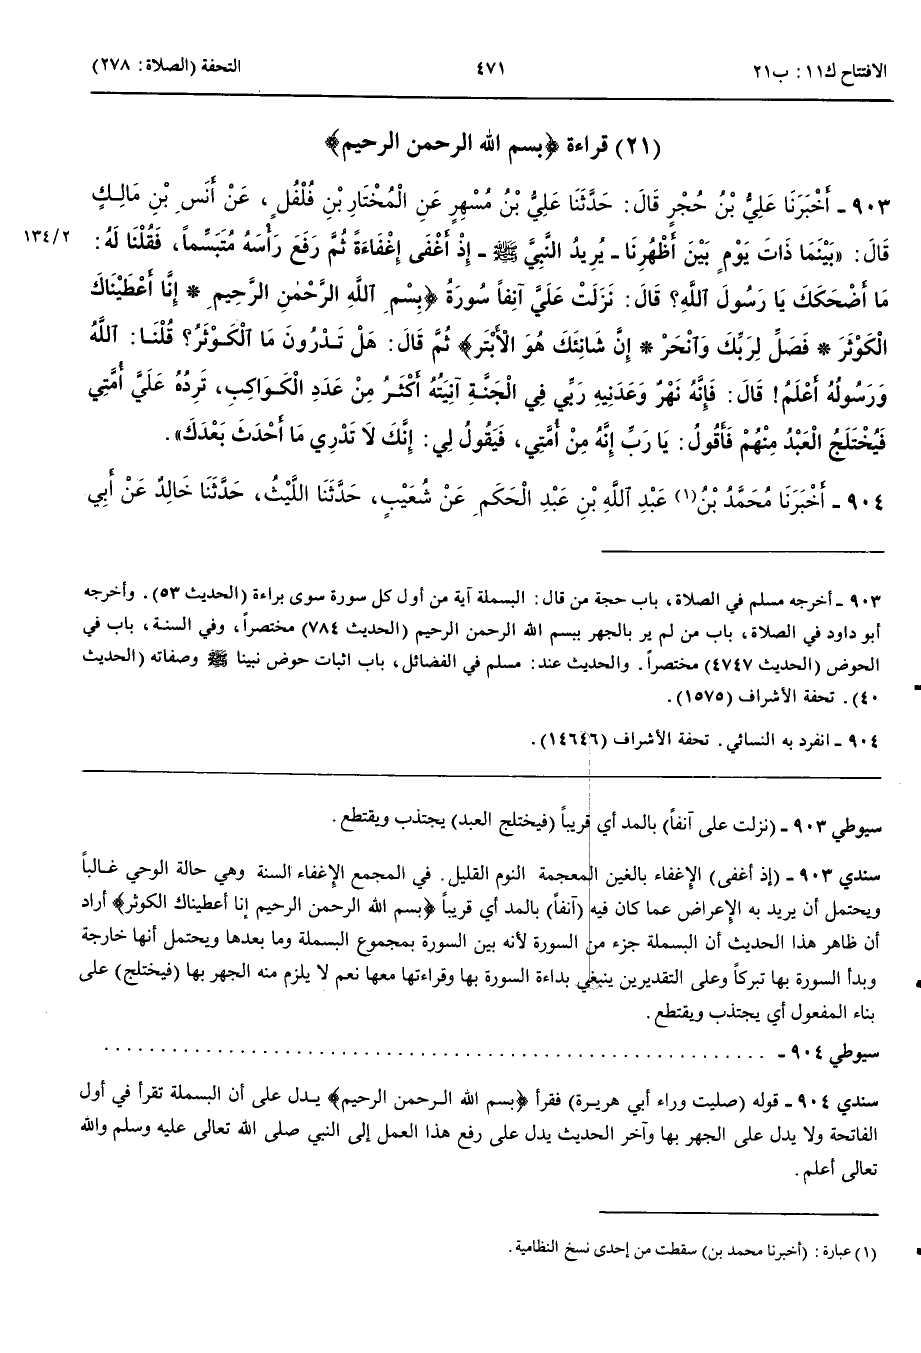 الافتتاح ك١١: ب٢١ ٤٧١ التحفة (الصلاة: ٢٧٨)
(٢١) قراءة ﴿بسم الله الرحمن الرحيم﴾
٩٠٣ ـ أَخْبَرَنَا عَلِيُّ بْنُ حُجْرٍ قَالَ: حَدَّثَنَا عَلِيُّ بْنُ مُسْهِرٍ عَنِ الْمُخْتَارِ بْنِ فُلْفُلٍ، عَنْ أَنَسِ بْنِ مَالِكٍ
قَالَ: «بَيْنَمَا ذَاتَ يَوْمٍ بَيْنَ أَظْهُرِنَا ـ يُرِيدُ النَّبِيَّ ﷺ ـ إِذْ أَغْفَى إِغْفَاءَةً ثُمَّ رَفَعَ رَأْسَهُ مُتَبَسِّماً، فَقُلْنَا لَهُ: ١٣٤/٢
مَا أَضْحَكَكَ يَا رَسُولَ اللَّهِ؟ قَالَ: نَزَلَتْ عَلَيَّ آنِفاً سُورَةُ ﴿بِسْمِ اللَّهِ الرَّحْمٰنِ الرَّحِيمِ * إِنَّا أَعْطَيْنَاكَ
الْكَوْثَرَ * فَصَلِّ لِرَبِّكَ وَانْحَرْ * إِنَّ شَانِئَكَ هُوَ الْأَبْتَر﴾ ثُمَّ قَالَ: هَلْ تَدْرُونَ مَا الْكَوْثَرُ؟ قُلْنَا: اللَّهُ
وَرَسُولُهُ أَعْلَمُ! قَالَ: فَإِنَّهُ نَهْرٌ وَعَدَنِيهِ رَبِّي فِي الْجَنَّةِ آنِيَتُهُ أَكْثَرُ مِنْ عَدَدِ الْكَوَاكِبِ، تَرِدُهُ عَلَيَّ أُمَّتِي
فَيُخْتَلَجُ الْعَبْدُ مِنْهُمْ فَأَقُولُ: يَا رَبِّ إِنَّهُ مِنْ أُمَّتِي، فَيَقُولُ لِي: إِنَّكَ لاَ تَدْرِي مَا أَحْدَثَ بَعْدَكَ».
٩٠٤ ـ أَخْبَرَنَا مُحَمَّدُ بْنُ(١) عَبْدِ اللَّهِ بْنِ عَبْدِ الْحَكَمِ عَنْ شُعَيْبٍ، حَدَّثَنَا اللَّيْثُ، حَدَّثَنَا خَالِدٌ عَنْ أَبِي
٩٠٣ ـ أخرجه مسلم في الصلاة، باب حجة من قال: البسملة آية من أول كل سورة سوى براءة (الحديث ٥٣). وأخرجه
أبو داود في الصلاة، باب من لم ير بالجهر ببسم الله الرحمن الرحيم (الحديث ٧٨٤) مختصراً، وفي السنة، باب في
الحوض (الحديث ٤٧٤٧) مختصراً. والحديث عند: مسلم في الفضائل، باب اثبات حوض نبينا ﷺ وصفاته (الحديث
٤٠). تحفة الأشراف (١٥٧٥).
٩٠٤ ـ انفرد به النسائي. تحفة الأشراف (١٤٦٤٦).
سيوطي ٩٠٣ ـ (نزلت على آنفاً) بالمد أي قريباً (فيختلج العبد) يجتذب ويقتطع.
سندي ٩٠٣ ـ (إذ أغفى) الإغفاء بالغين المعجمة النوم القليل. في المجمع الإغفاء السنة وهي حالة الوحي غالباً
ويحتمل أن يريد به الإعراض عما كان فيه (آنفاً) بالمد أي قريباً ﴿بسم الله الرحمن الرحيم إنا أعطيناك الكوثر﴾ أراد
أن ظاهر هذا الحديث أن البسملة جزء من السورة لأنه بين السورة بمجموع البسملة وما بعدها ويحتمل أنها خارجة
وبدأ السورة بها تبركاً وعلى التقديرين ينبغي بداءة السورة بها وقراءتها معها نعم لا يلزم منه الجهر بها (فيختلج) على
بناء المفعول أي يجتذب ويقتطع.
سيوطي ٩٠٤ ـ . . . . . . . . . . . . . . . . . . . . . . . . . . . . . .
سندي ٩٠٤ ـ قوله (صليت وراء أبي هريرة) فقرأ ﴿بسم الله الرحمن الرحيم﴾ يدل على أن البسملة تقرأ في أول
الفاتحة ولا يدل على الجهر بها وآخر الحديث يدل على رفع هذا العمل إلى النبي صلى الله تعالى عليه وسلم والله
تعالى أعلم.
(١) عبارة: (أخبرنا محمد بن) سقطت من إحدى نسخ النظامية.